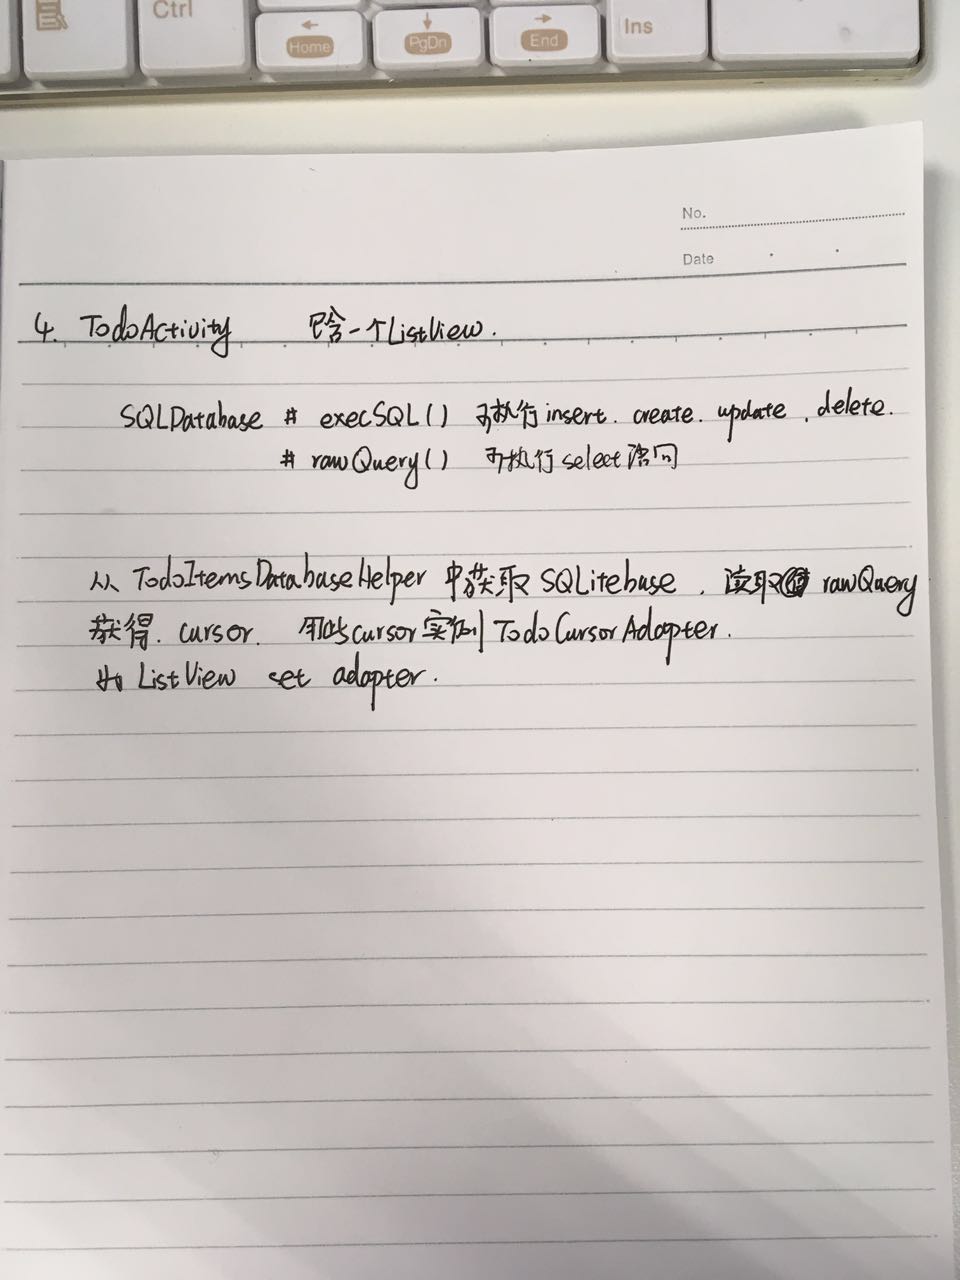 Ctrl
Home
PgDn
End
Ins
No.
Date
4. TodoActivity 包含一个ListView.
SQLDatabase # execSQL() 可执行insert. create. update. delete.
# rawQuery() 可执行select语句
从 TodoItemsDatabaseHelper 中获取 SQLitebase. 读取 rawQuery
获得. cursor. 用此cursor实例 TodoCursorAdapter.
为 ListView set adapter.